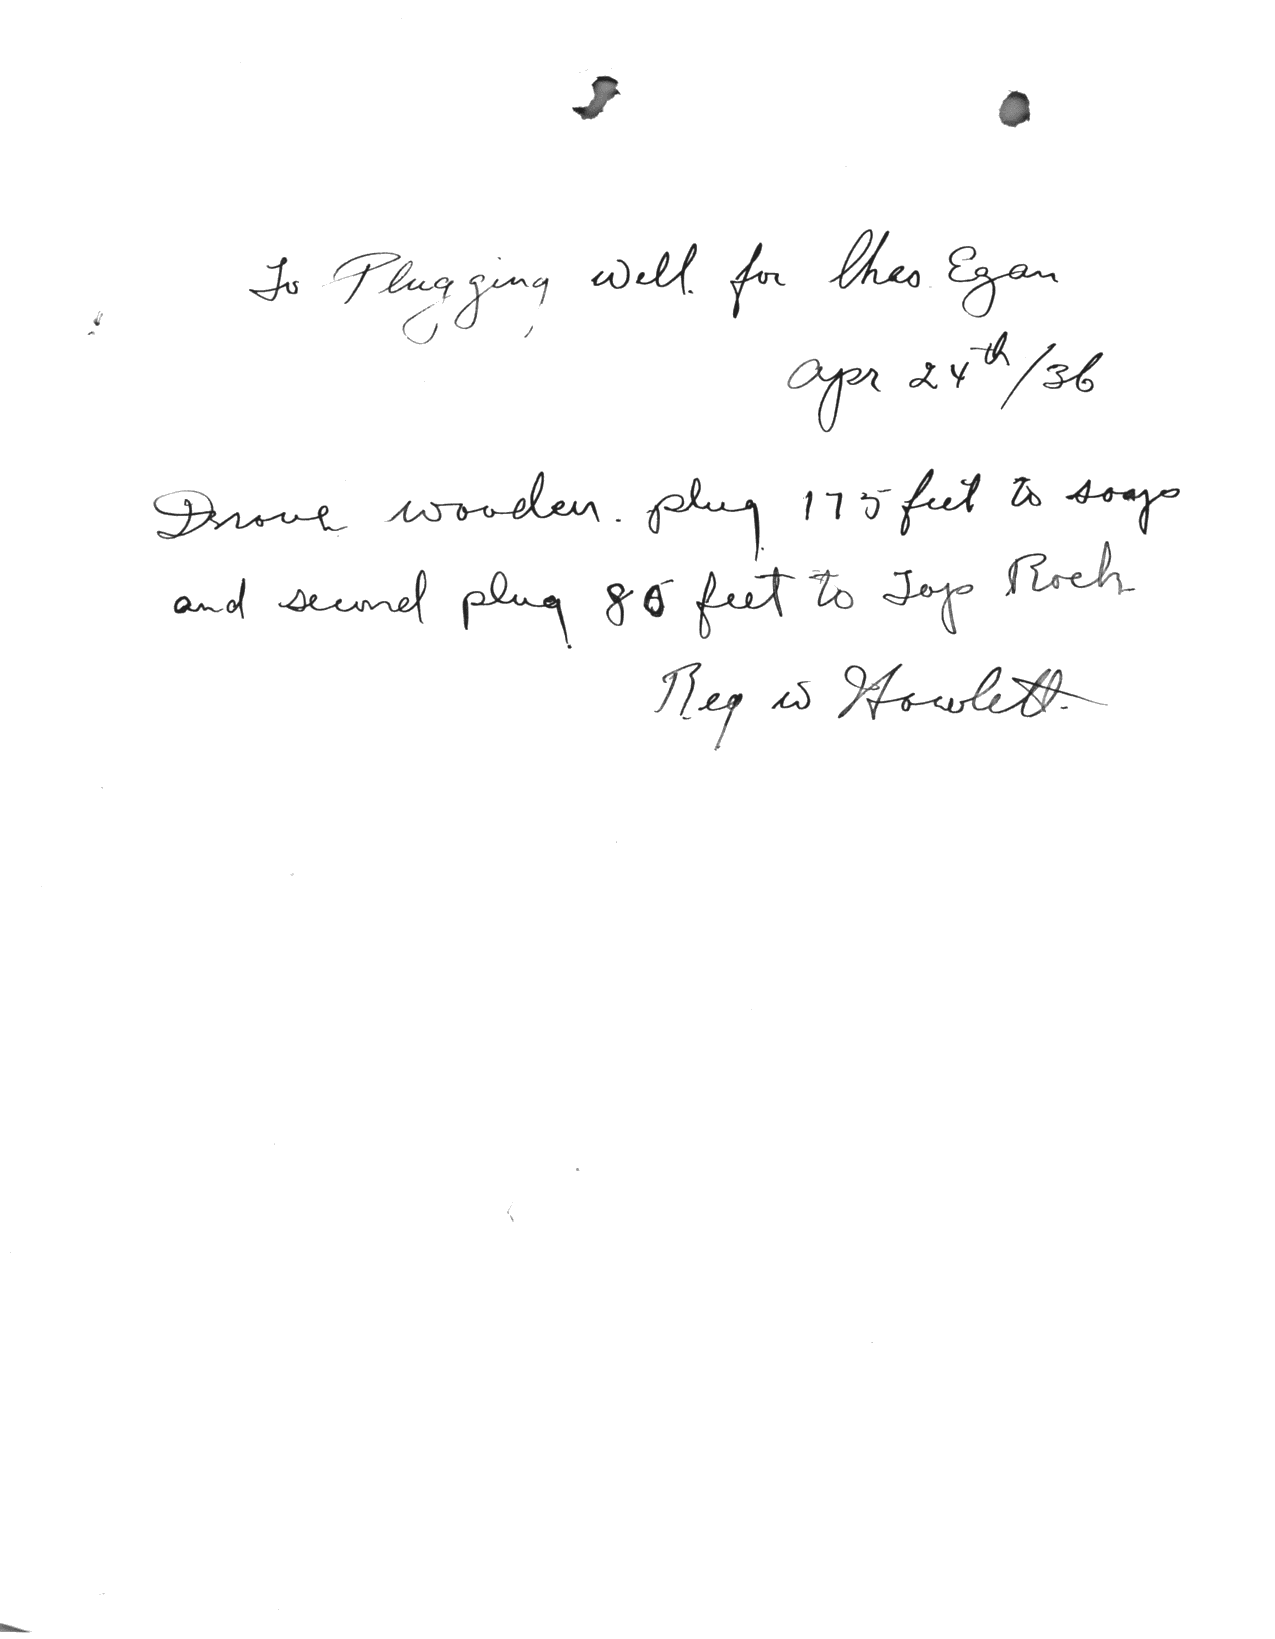 To Plugging well. for Chas Egan
Apr 24th/36
Drove wooden. plug 175 feet to soap
and second plug 80 feet to Top Rock
Reg W Howlett.